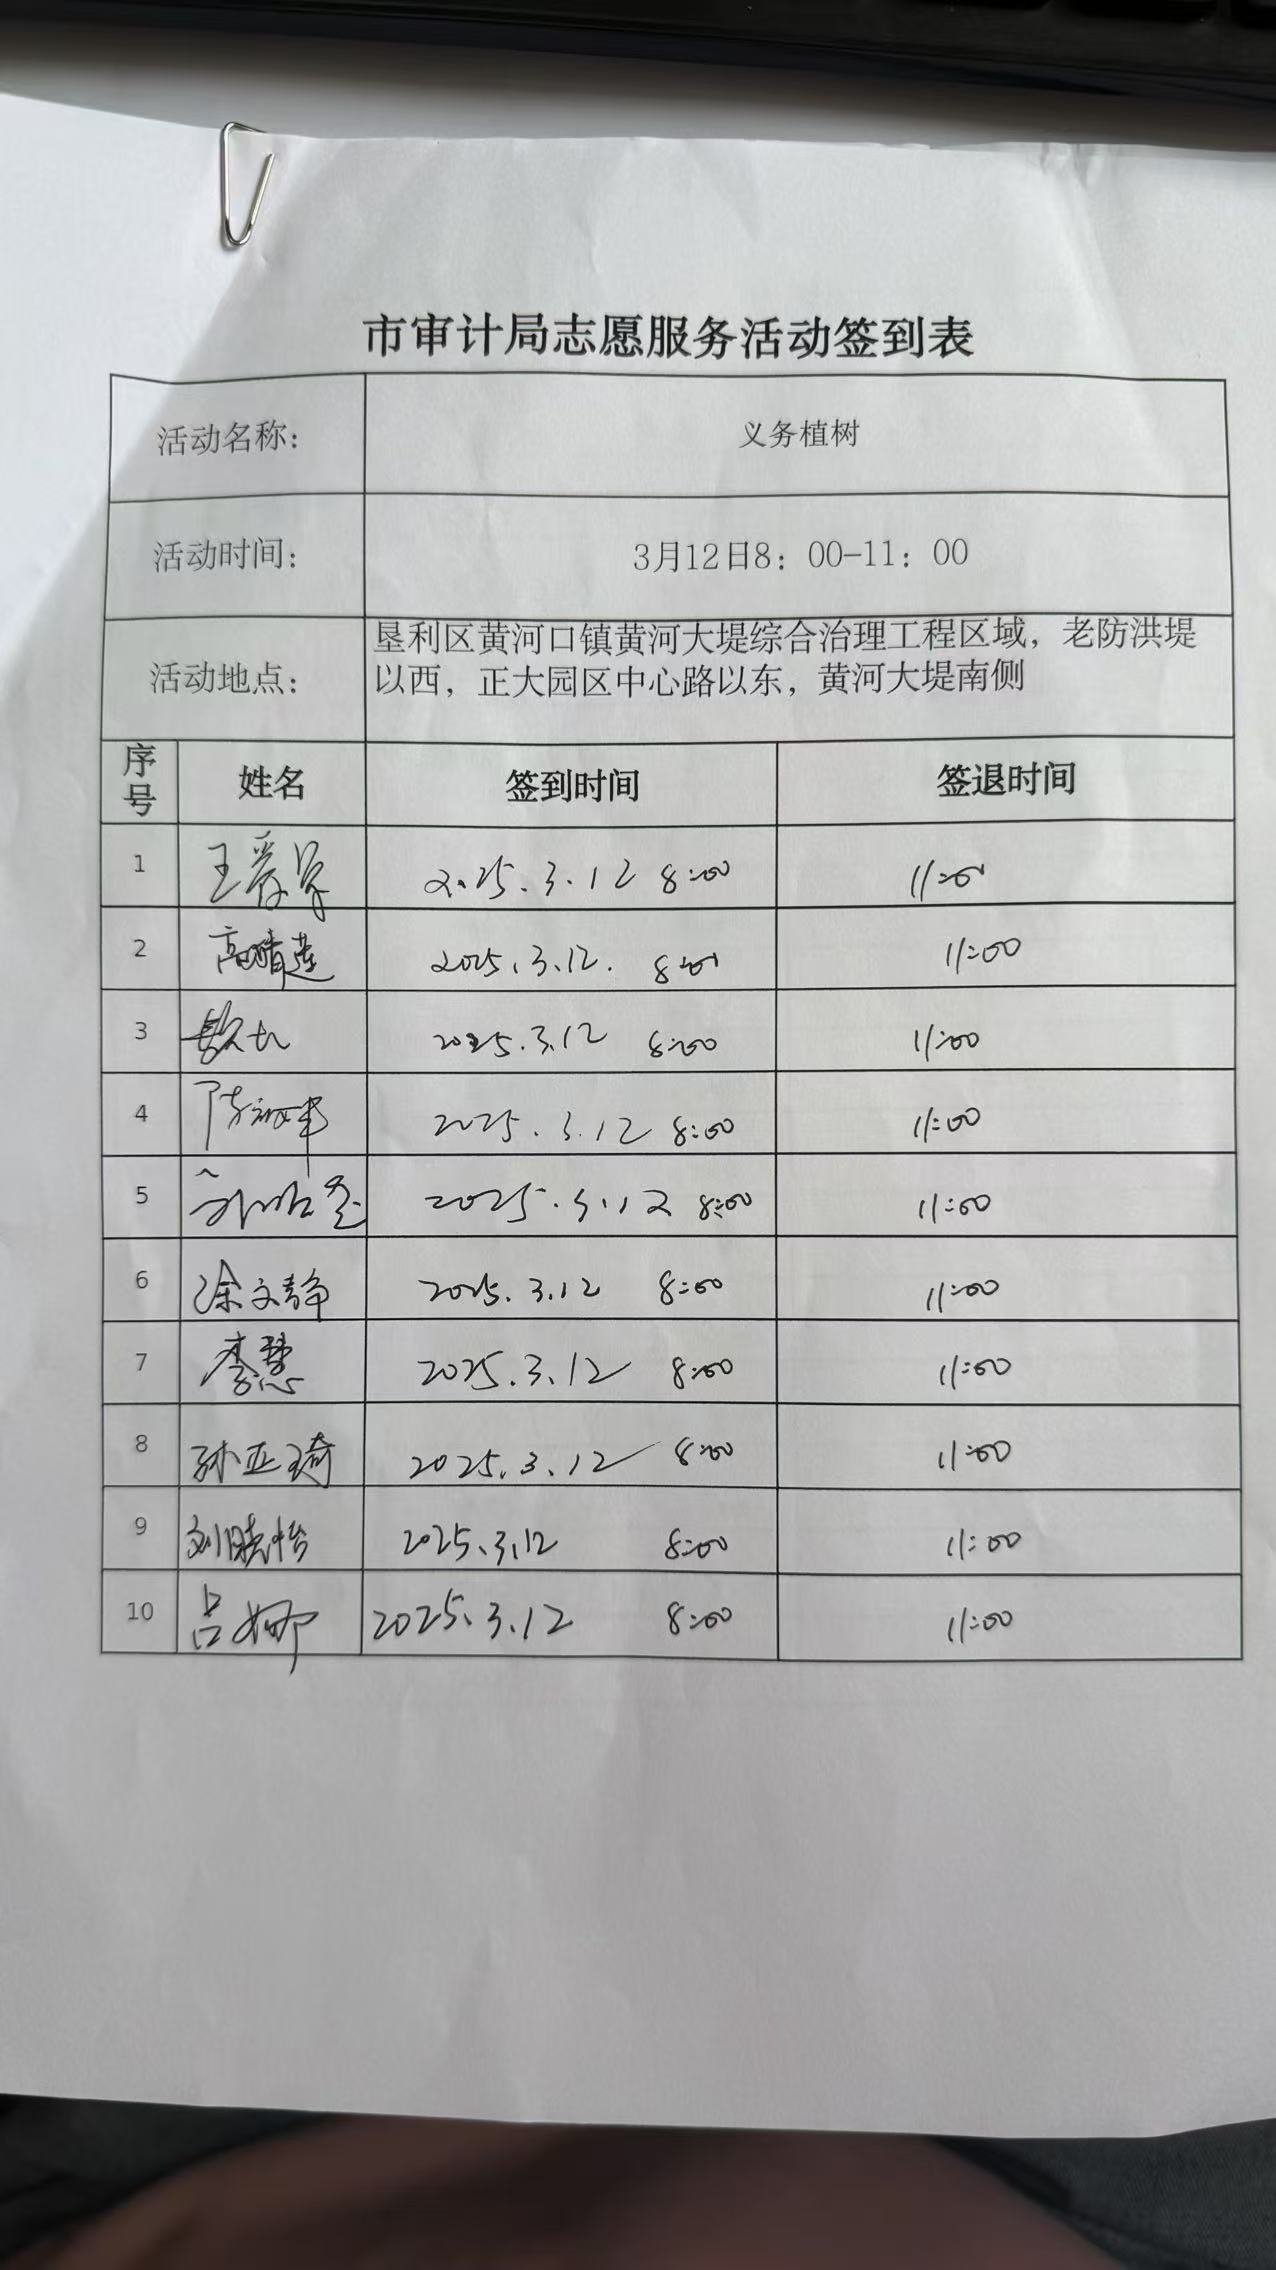 市审计局志愿服务活动签到表
活动名称： 义务植树
活动时间： 3月12日8：00-11：00
活动地点： 垦利区黄河口镇黄河大堤综合治理工程区域，老防洪堤
以西，正大园区中心路以东，黄河大堤南侧
序号 姓名 签到时间 签退时间
1 王 2025.3.12 8:00 11:00
2 高晴莲 2025.3.12. 8:00 11:00
3 2025.3.12 8:00 11:00
4 陈 2025.3.12 8:00 11:00
5 2025.3.12 8:00 11:00
6 徐文静 2025.3.12 8:00 11:00
7 李慧 2025.3.12 8:00 11:00
8 孙亚琦 2025.3.12 8:00 11:00
9 刘晓怡 2025.3.12 8:00 11:00
10 吕娜 2025.3.12 8:00 11:00